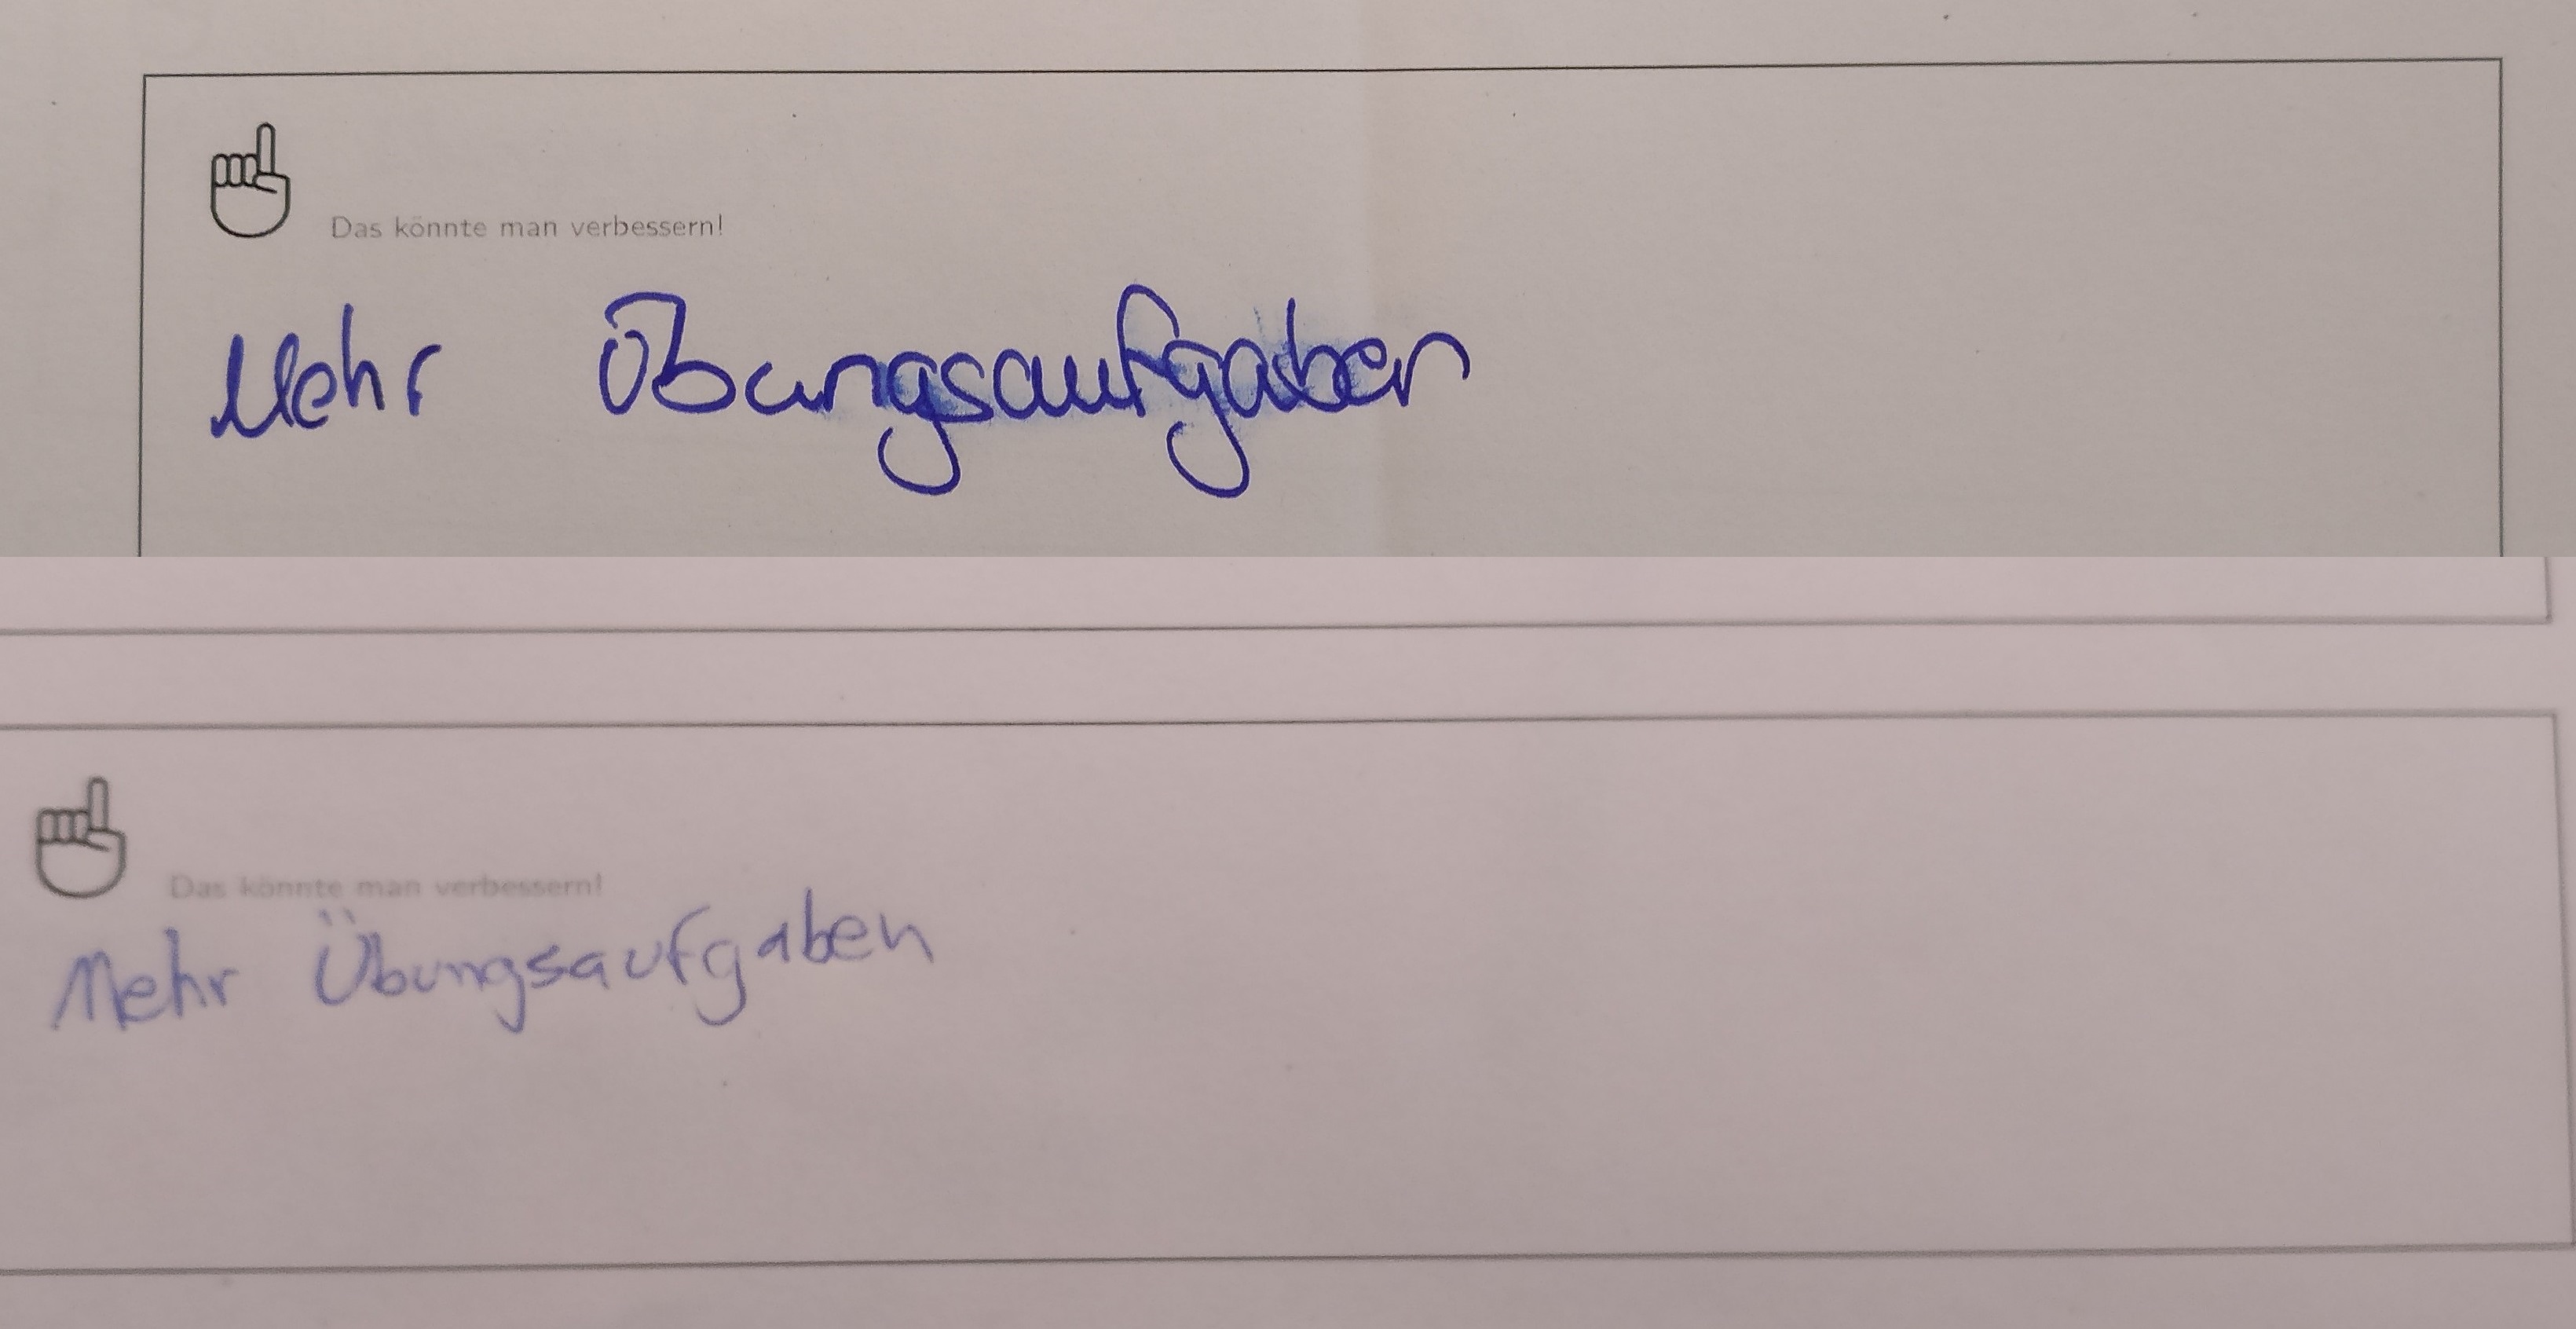 Das könnte man verbessern!
Mehr Übungsaufgaben
Das könnte man verbessern!
Mehr Übungsaufgaben